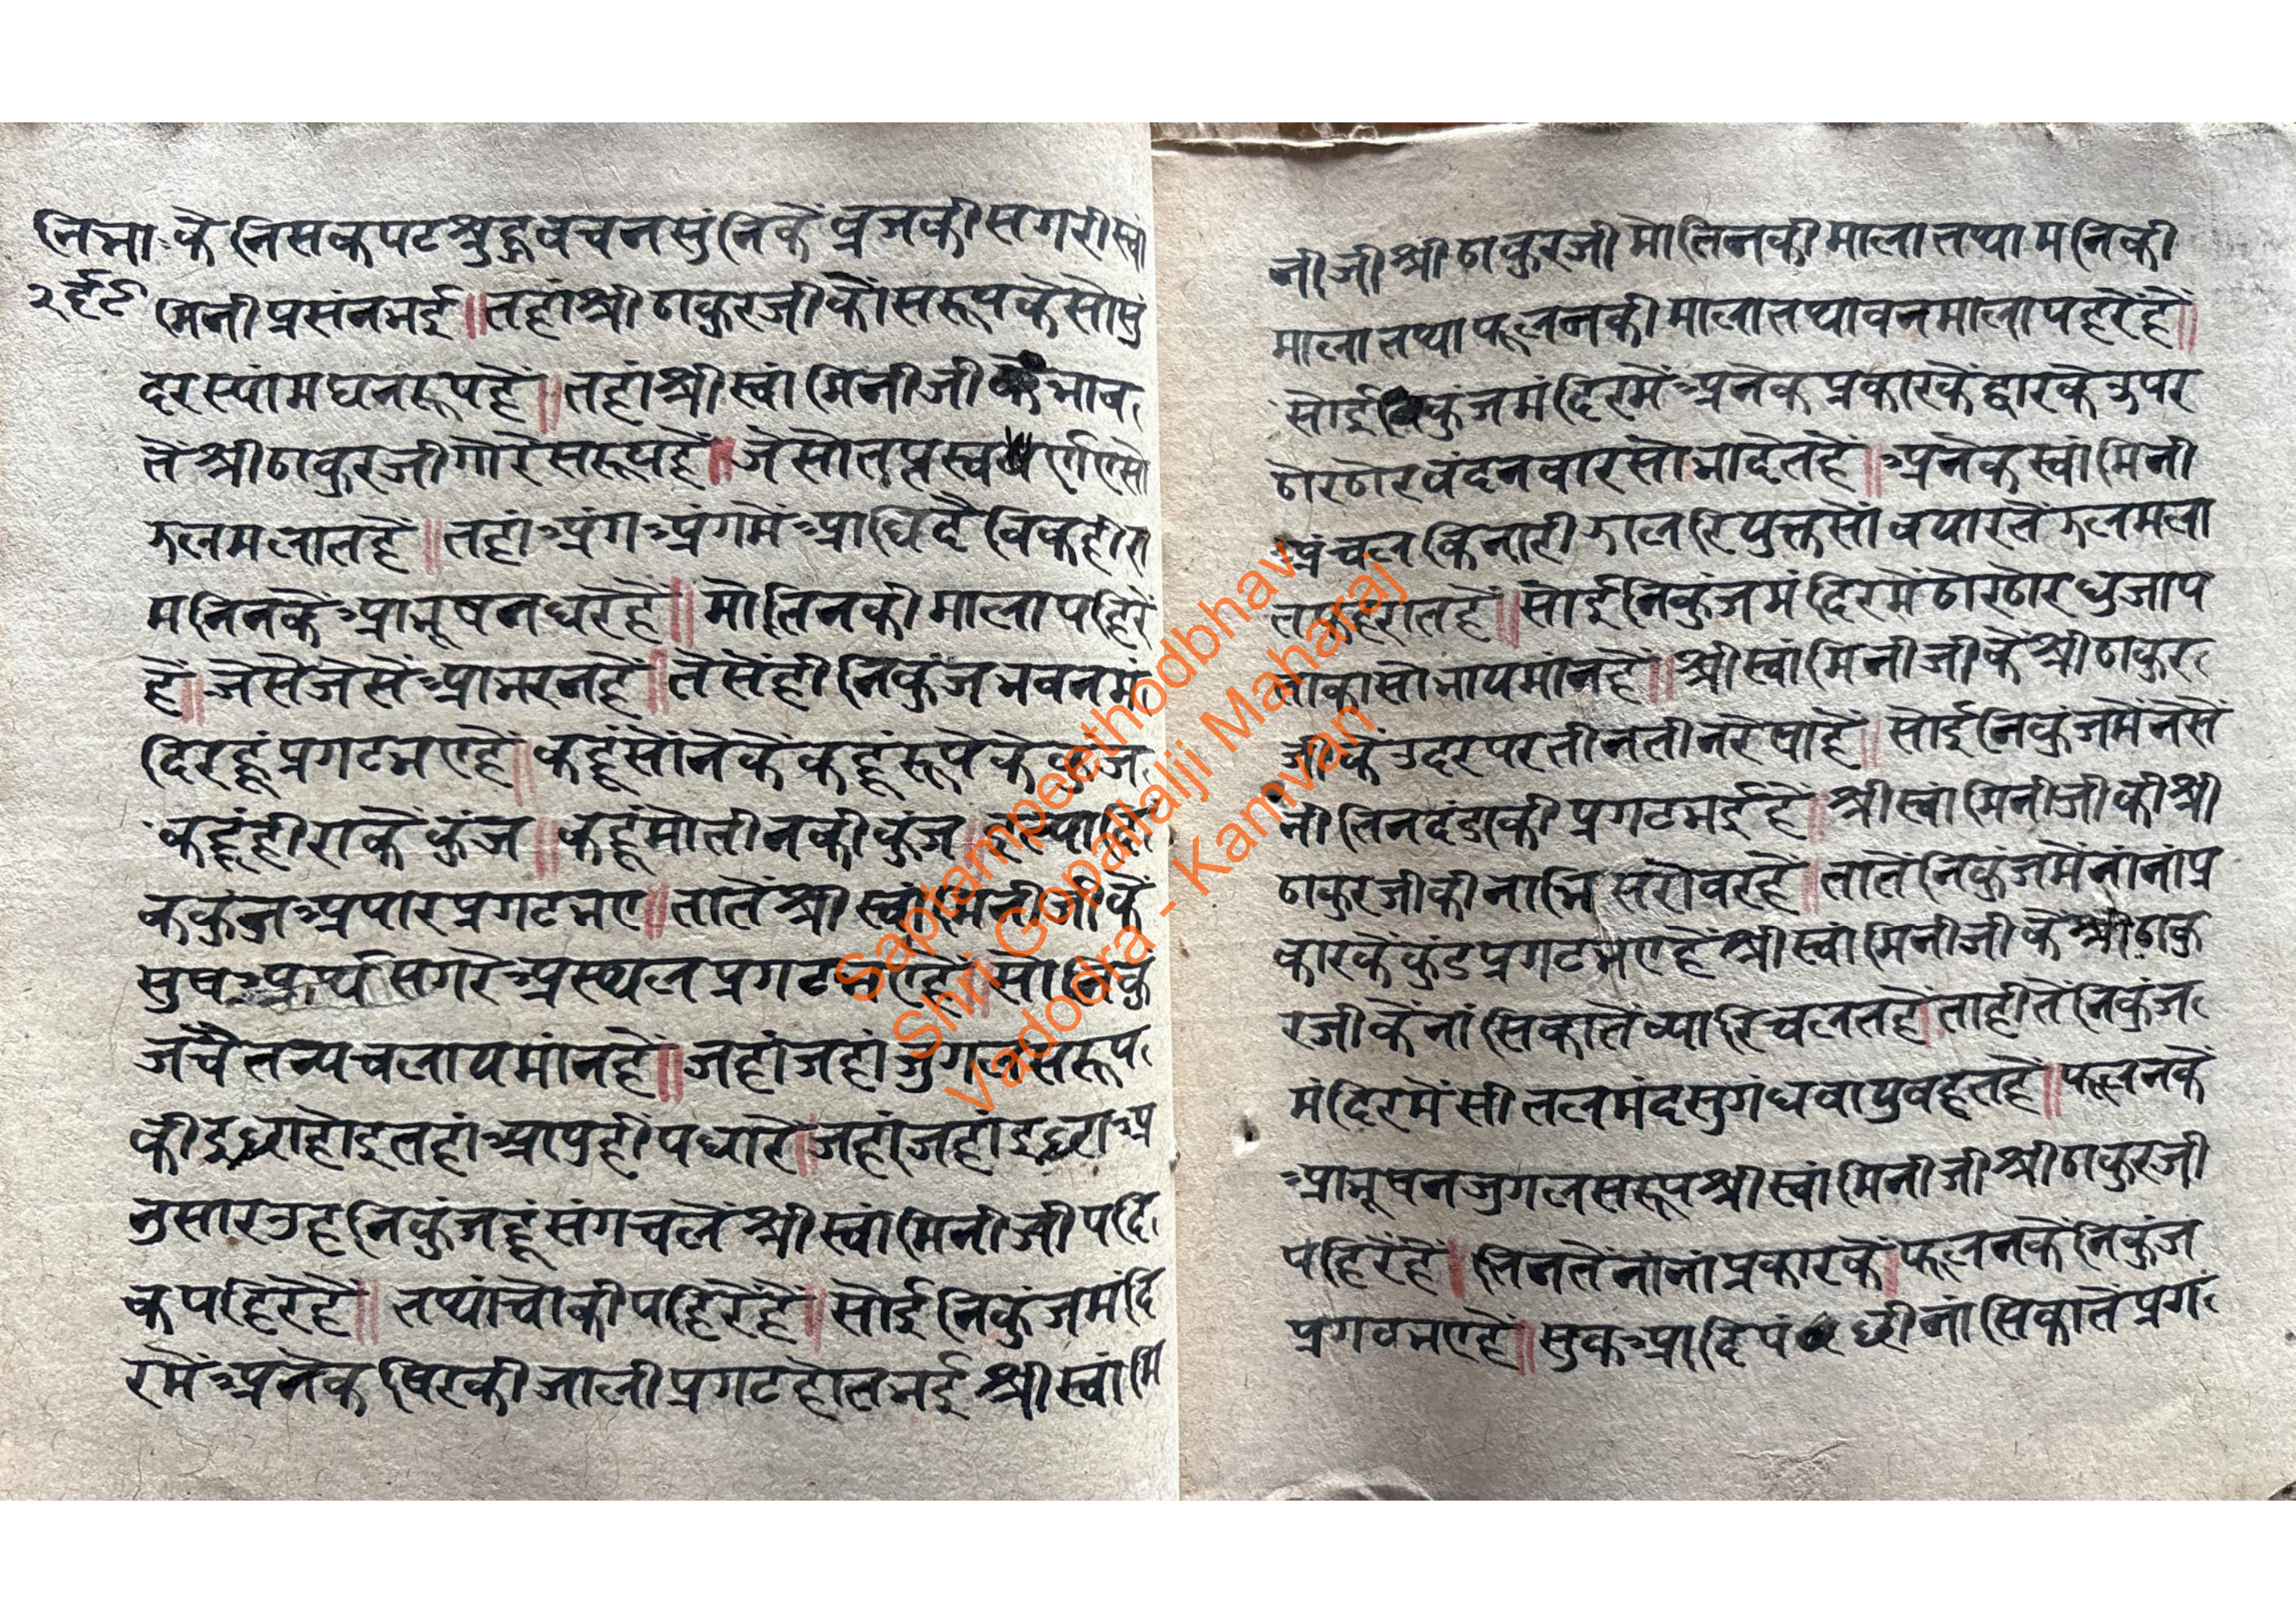 निभा कें निसकपट श्रुद्धवचनसुंनिकें व्रजकी सगरी स्वां
२६९ मिनी प्रसंनभई॥ तहां श्री ठाकुरजी कौ सरूप केसो सुं
दर स्यांमघनरूपहें॥ तहां श्री स्वांमिनीजी कें भाव
तें श्री ठाकुरजी गोरे सरूपहें॥ जेसो तप्तस्वर्ण एसो
झलमलातहें॥ तहां अंग अंगमें आधिदैविकहीरा
मनिनकें आभूषन धरेहें॥ मोतिनकी माला पहिरें
हें॥ जेसे जेसें आभरनहें॥ तेसेंही निकुंजभवनमं
दिरहूं प्रगटभएहें॥ कहूं सोंनेकें कहूं रूपेके कुंज
कहूं हीराकें कुंज॥ कहूं मोतीनकी कुंज॥ इत्यादि
क कुंज अपार प्रगटभए॥ तातें श्री स्वांमिनीजी कें
सुष अर्थ सगरे अस्थल प्रगटभएहें॥ सो निकुं
ज चैतन्य चलायमांनहें॥ जहां जहां जुगलसरूप
की इछा होइ तहां आपुही पधारें॥ जहां जहां इछा अ
नुसार उह निकुंजहूं संग चलें श्री स्वांमिनीजी पदि
क पहिरेहें॥ तथां चोकी पहिरेंहें॥ सोई निकुंजमंदि
रमें अनेक षिरकी जाली प्रगट होतभई श्री स्वांमि
नीजी श्री ठाकुरजी मोतिनकी माला तथा मनिकी
माला तथा फूलनकी माला तथा वनमाला पहरेंहें॥
सोई कुंजमंदिरमें अनेक प्रकारकें द्वारके उपर
ठोरठोर वंदनवार सोभा देतहें॥ अनेक स्वांमिनी
अंचल किनारी झालरियुक्त सों वयारतें झलमला
त फहरातहें॥ सोई निकुंजमंदिरमें ठोरठोर धुजाप
ताका सोभायमांनहें॥ श्री स्वांमिनीजी के श्री ठाकुर
जीकें उदरपर तीनतीन रेषाहें॥ सोई निकुंजमें नेसे
नी तिनदंडाकी प्रगटभईहें॥ श्री स्वांमिनीजीकी श्री
ठाकुरजीकी नाभि सरोवरहें॥ तातें निकुंजमें नांनांप्र
कारकें कुंड प्रगटभएहें श्री स्वांमिनीजी कें श्री ठाकु
रजीकें नांसिकातें व्यारि चलतहें॥ ताहीतें निकुंज
मंदिरमें सीतलमंदसुगंधवायु वहतहें॥ फूलनकें
आभूषन जुगलसरूप श्री स्वांमिनीजी श्री ठाकुरजी
पहिरेंहें॥ तिनतें नांनांप्रकारकें॥ फूलनकें निकुंज
प्रगटभएहें॥ सुक आदि पंछी नांसिकातें प्रग